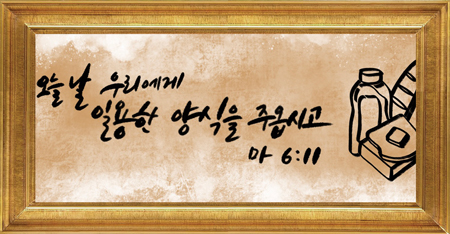 오늘날 우리에게
일용한 양식을 주옵시고
마 6:11